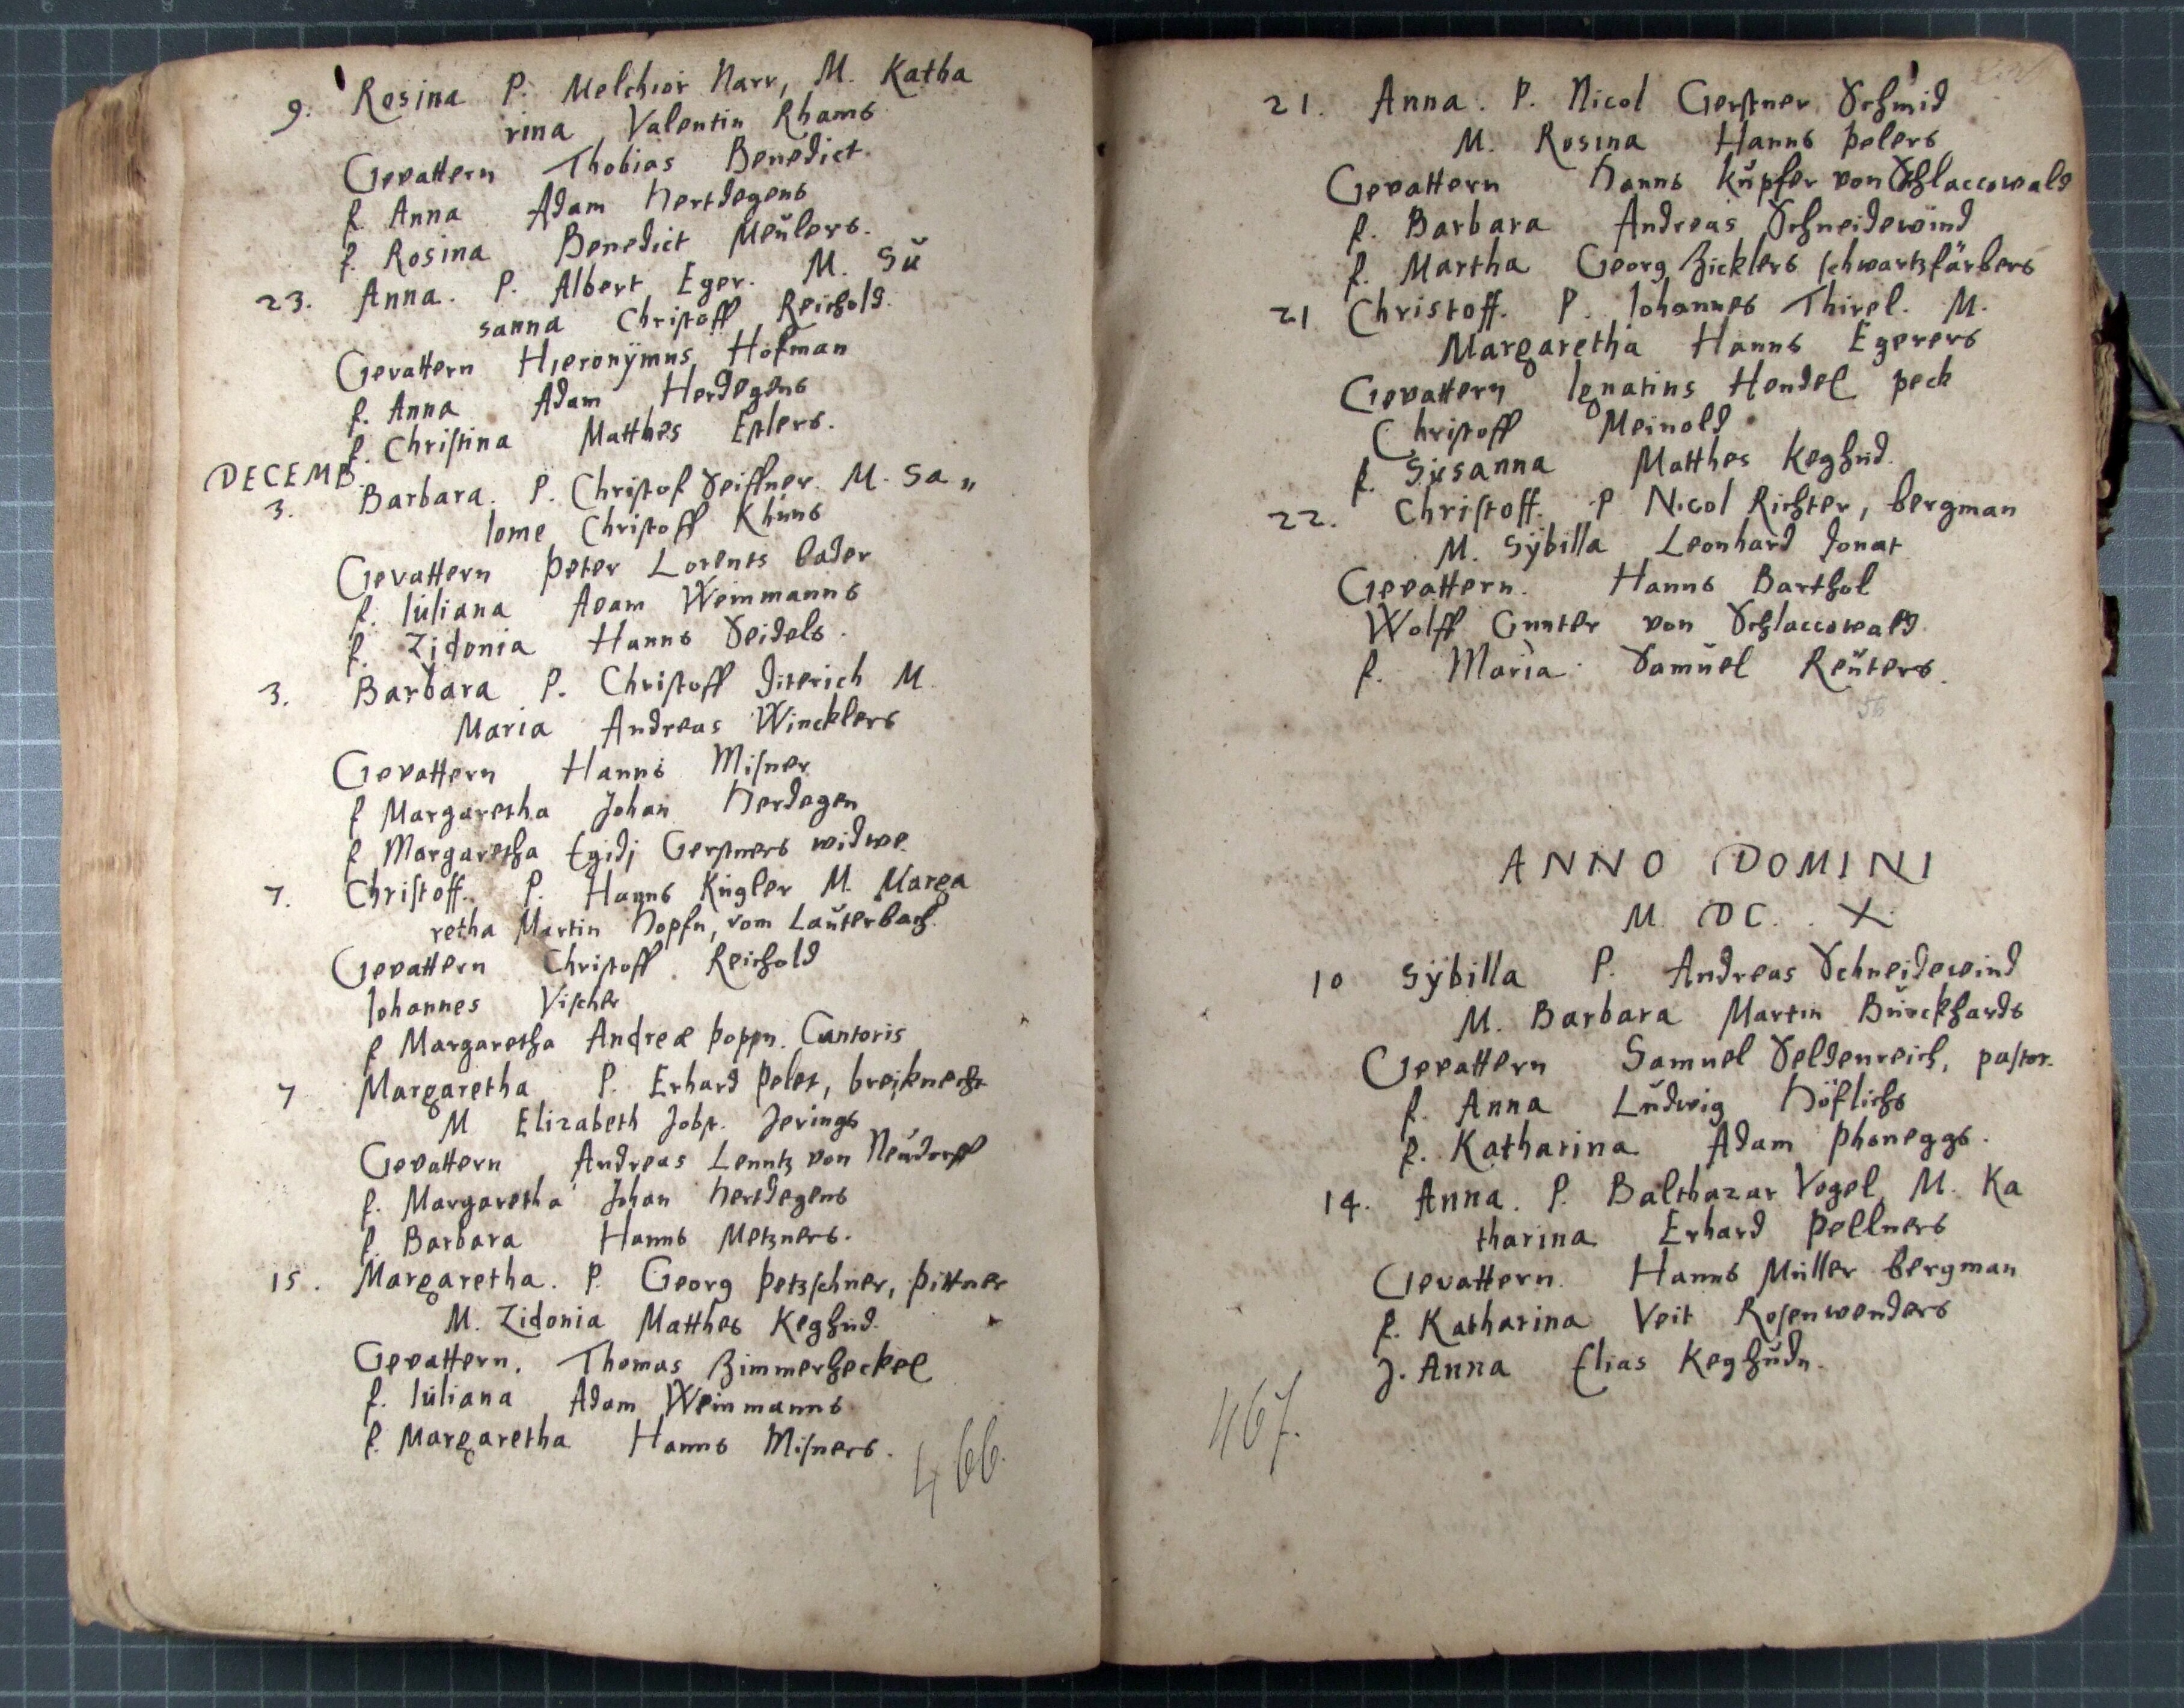 9. Rosina P. Melchior Narr, M. Katha
rina Valentin Rhams
Gevattern Thobias Benedict.
f. Anna Adam Hertdegens
f. Rosina Benedict Meülers.
23. Anna. P. Albert Eger. M. Sü
sanna Christoff Reichold.
Gevattern Hieronÿmus Hofman
f. Anna Adam Herdegens
f. Christina Matthes Eplers.
DECEMB.
3. Barbara. P. Christof Seiffner. M. Sa„
lome Christoff Khüns
Gevattern Peter Lorents bader
f. Iüliana Adam Weinmanns
f. Zidonia Hanns Seidels.
3. Barbara P. Christoff Diterich M.
Maria Andreas Wincklers
Gevattern Hanns Misner
f Margaretha Johan Herdegen
f Margaretha Egidj Gerstners widwe
7. Christoff. P. Hanns Kügler M. Marga
retha Martin Hopfn, vom Laüterbach.
Gevattern Christoff Reichold
Iohannes Vischer
f Margaretha Andreæ Poppn. Cantoris
7 Margaretha P. Erhard Pelet, breiknecht
M Elizabeth Jobst. Jerings
Gevattern Andreas Lenntz von Neüdorff
f. Margaretha Johan Hertdegens
f. Barbara Hanns Metzners.
15. Margaretha. P. Georg Petzschner, Pittner
M. Zidonia Matthes Keghüd.
Gevattern. Thomas Zimmerheckel
f. Iüliana Adam Weinmanns
f. Margaretha Hanns Misners.
466.
21. Anna. P. Nicol Gerstner Schmid
M. Rosina Hanns Pelers
Gevattern Hanns Küpfer von Schlaccowald
f. Barbara Andreas Schneidewind
f. Martha Georg Zicklers schwartzfärbers
21 Christoff. P. Iohannes Thirel. M.
Margaretha Hanns Egerers
Gevattern Ignatius Hendel peck
Christoff Meinold
f. Süsanna Matthes Keghüd.
22. Christoff. P Nicol Richter, bergman
M. Sÿbilla Leonhard Donat
Gevattern. Hanns Barthol
Wolff Gunter von Schlaccowald.
f. Maria Samüel Reüters.
ANNO DOMINI
M. DC. X.
10 Sÿbilla P. Andreas Schneidewind
M. Barbara Martin Bürckhards
Gevattern Samuel Seldenreich, pastor.
f. Anna Lüdwig Höflichs
f. Katharina Adam Phoneggs.
14. Anna. P. Balthazar Vogel M. Ka
tharina Erhard Pellners
Gevattern. Hanns Müller bergman
f. Katharina Veit Rosenwenders
J. Anna Elias Keghüdn.
467.